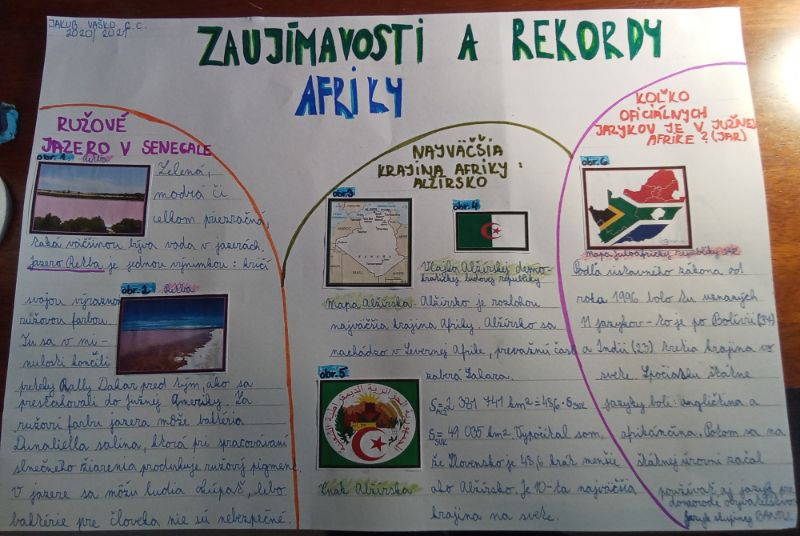 JAKUB VAŠKO 6.C.
2020/2021
ZAUJÍMAVOSTI A REKORDY
AFRIKY
RUŽOVÉ
JAZERO V SENEGALE
obr. 1 Retba
Zelená,
modrá či
celkom priezračná,
taká väčšinou býva voda v jazerách.
Jazero Retba je jednou výnimkou: kričí
svojou výraznou
ružovou farbou.
obr. 2 Retba
Tu sa v mi-
nulosti končili
preteky Rally Dakar pred tým, ako sa
presťahovali do Južnej Ameriky. Za
ružovú farbu jazera môže baktéria
Dunaliella salina, ktorá pri spracovávaní
slnečného žiarenia produkuje ružový pigment.
V jazere sa môžu ľudia kúpať, lebo
baktérie pre človeka nie sú nebezpečné.
NAJVÄČŠIA
KRAJINA AFRIKY:
ALŽÍRSKO
obr. 3
obr. 4
Vlajka Alžírskej demo-
kratickej ľudovej republiky
Mapa Alžírska
Alžírsko je rozlohou
najväčšia krajina Afriky. Alžírsko sa
nachádza v Severnej Afrike, prevažnú časť
zaberá Sahara.
obr. 5
Znak Alžírska
S = 2 381 741 km² = 48,6 · S
S = 49 035 km². Vypočítal som,
že Slovensko je 48,6 krát menšie
ako Alžírsko. Je 10-ta najväčšia
krajina na svete.
KOĽKO
OFICIÁLNYCH
JAZYKOV JE V JUŽNEJ
AFRIKE? (JAR)
obr. 6
Mapa Juhoafrickej republiky
Podľa ústavného zákona od
roku 1996 bolo tu uznaných
11 jazykov - to je po Bolívii (37)
a Indii (23) tretia krajina vo
svete. Spočiatku štátne
jazyky boli angličtina a
afrikánčina. Potom sa na
štátnej úrovni začal
používať aj jazyk pre
domorodé obyvateľstvo
jazyk skupiny BANTU.